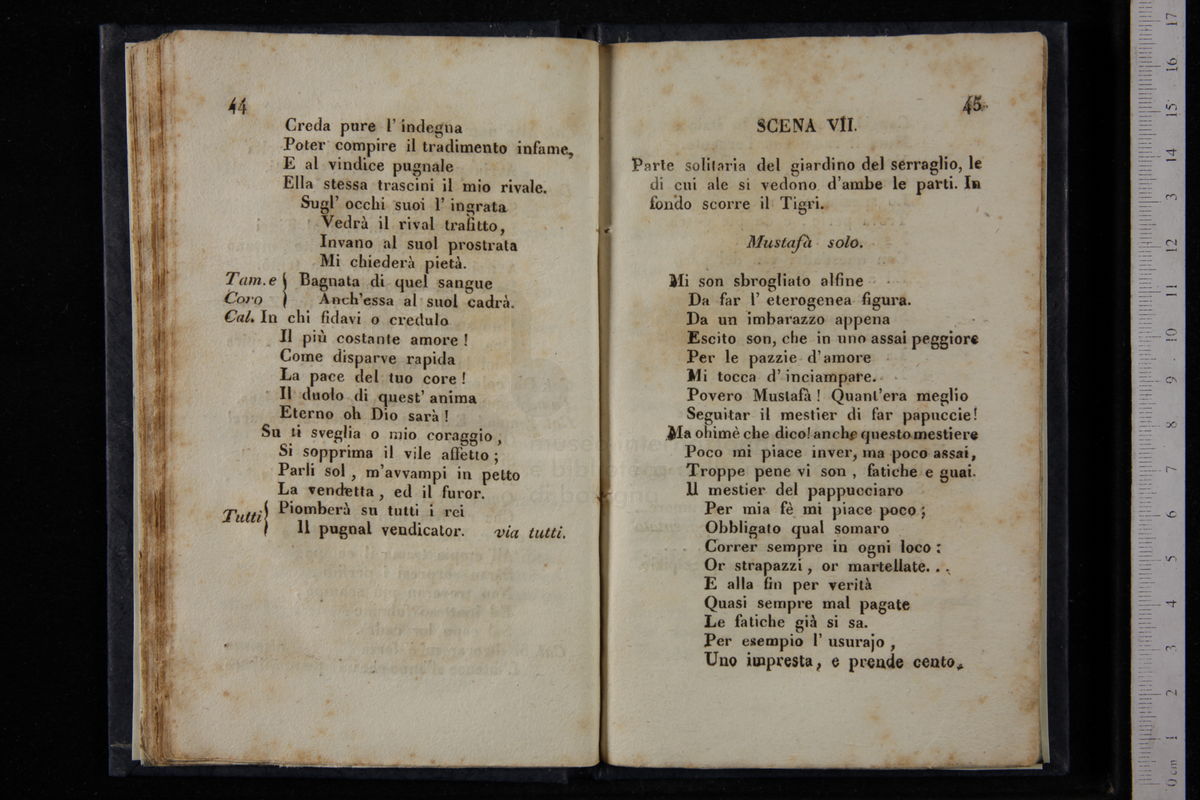 44
Creda pure l' indegna
Poter compire il tradimento infame,
E al vindice pugnale
Ella stessa trascini il mio rivale.
Sugl' occhi suoi l' ingrata
Vedrà il rival trafitto,
Invano al suol prostrata
Mi chiederà pietà.
Tam. e { Bagnata di quel sangue
Coro } Anch'essa al suol cadrà.
Cal. In chi fidavi o credulo
Il più costante amore !
Come disparve rapida
La pace del tuo core !
Il duolo di quest' anima
Eterno oh Dio sarà !
Su ti sveglia o mio coraggio ,
Si sopprima il vile affetto ;
Parli sol , m'avvampi in petto
La vendetta , ed il furor.
Tutti { Piomberà su tutti i rei
Il pugnal vendicator. via tutti.
45
SCENA VII.
Parte solitaria del giardino del serraglio, le
di cui ale si vedono d'ambe le parti. In
fondo scorre il Tigri.
Mustafà solo.
Mi son sbrogliato alfine
Da far l' eterogenea figura.
Da un imbarazzo appena
Escito son, che in uno assai peggiore
Per le pazzie d'amore
Mi tocca d' inciampare.
Povero Mustafà ! Quant'era meglio
Seguitar il mestier di far papuccie!
Ma ohimè che dico! anche questo mestiere
Poco mi piace inver, ma poco assai,
Troppe pene vi son , fatiche e guai.
Il mestier del pappucciaro
Per mia fè mi piace poco ;
Obbligato qual somaro
Correr sempre in ogni loco :
Or strapazzi , or martellate. . .
E alla fin per verità
Quasi sempre mal pagate
Le fatiche già si sa.
Per esempio l' usurajo ,
Uno impresta, e prende cento.
museo inter
e biblioteca
di bologna
0 cm 1 2 3 4 5 6 7 8 9 10 11 12 13 14 15 16 17